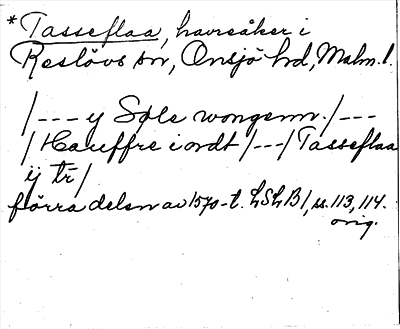 *Tasseflaa, havreåker i
Reslövs sn, Onsjö hd, Malm. l.
/--- y Søle wongenn. /---
/ Hauffre iordt /---/ Tasseflaa
ÿ tr̄ /
förra delen av 1570-t. LSLB 1, ss. 113, 114.
orig.